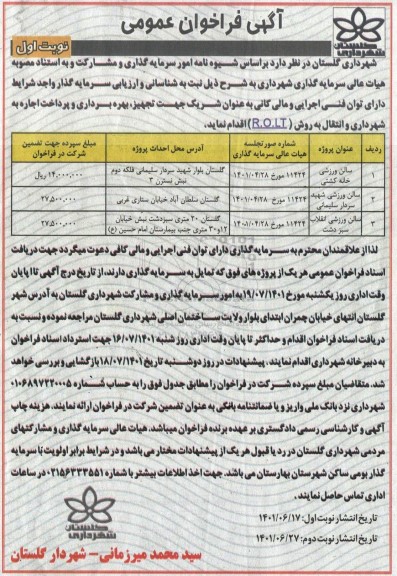 آگهی فراخوان عمومی
نوبت اول
گلستان
شهرداری
شهرداری گلستان در نظر دارد براساس شیوه نامه امور سرمایه گذاری و مشارکت و به استناد مصوبه
هیات عالی سرمایه گذاری شهرداری به شرح ذیل نبت به شناسائی و ارزیابی سرمایه گذار واجد شرایط
دارای توان فنی، اجرایی و مالی کافی به عنوان شریک جهت تجهیز، بهره برداری و پرداخت اجاره به
شهرداری و انتقال به روش (R.O.L.T) اقدام نماید.
ردیف | عنوان پروژه | شماره صورتجلسه هیات عالی سرمایه گذاری | آدرس محل احداث پروژه | مبلغ سپرده جهت تضمین شرکت در فراخوان
۱ | سالن ورزشی خانه کشتی | ۱۱۴۲۴ مورخ ۱۴۰۱/۰۴/۲۸ | گلستان بلوار شهید سردار سلیمانی فلکه دوم نبش بیسترن ۳ | ۱۴,۰۰۰,۰۰۰ ریال
۲ | سالن ورزشی شهید سردار سلیمانی | ۱۱۴۲۴ مورخ ۱۴۰۱/۰۴/۲۸ | گلستان سلطان آباد خیابان ستاری غربی | ۲۷,۵۰۰,۰۰۰
۳ | سالن ورزشی انقلاب سبز دشت | ۱۱۴۲۴ مورخ ۱۴۰۱/۰۴/۲۸ | گلستان ۲۰ متری سبزدشت نبش خیابان ۱۲و۳۰ متری جنب بیمارستان امام حسین (ع) | ۲۷,۵۰۰,۰۰۰
لذا از علاقمندان محترم به سرمایه گذاری دارای توان فنی اجرایی و مالی کافی دعوت میگردد جهت دریافت
اسناد فراخوان عمومی هر یک از پروژه های فوق که تمایل به سرمایه گذاری دارند، از تاریخ درج آگهی تا پایان
وقت اداری روز یکشنبه مورخ ۱۹/۰۷/۱۴۰۱ به امور سرمایه گذاری و مشارکت شهرداری گلستان به آدرس شهر
گلستان انتهای خیابان چمران ابتدای بلوار ولایت ساختمان اصلی شهرداری گلستان مراجعه نموده و نسبت به
دریافت اسناد فراخوان اقدام و حداکثر تا پایان وقت اداری روز شنبه ۱۶/۰۷/۱۴۰۱ جهت استرداد اسناد فراخوان
به دبیرخانه شهرداری اقدام نمایند. پیشنهادات در روز دوشنبه تاریخ ۱۸/۰۷/۱۴۰۱ بازگشایی و بررسی خواهد
شد. متقاضیان مبلغ سپرده شرکت در فراخوان را مطابق جدول فوق را به حساب شماره ۰۱۰۶۸۹۷۲۲۰۰۰۵
شهرداری نزد بانک ملی واریز و یا ضمانتنامه بانکی به عنوان تضمین شرکت در فراخوان ارائه نمایند. هزینه چاپ
آگهی و کارشناسی رسمی دادگستری بر عهده برنده فراخوان میباشد. هیات عالی سرمایه گذاری و مشارکتهای
مردمی شهرداری گلستان در رد یا قبول هر یک از پیشنهادات مختار می باشد و در شرایط برابر اولویت با سرمایه
گذار بومی ساکن شهرستان بهارستان می باشد. جهت اخذ اطلاعات بیشتر با شماره ۰۲۱۵۶۳۳۳۵۵۱ در ساعات
اداری تماس حاصل نمایند.
تاریخ انتشار نوبت اول: ۱۴۰۱/۰۶/۱۷
تاریخ انتشار نوبت دوم: ۱۴۰۱/۰۶/۲۷
گلستان
شهرداری
سید محمد میرزمانی - شهردار گلستان